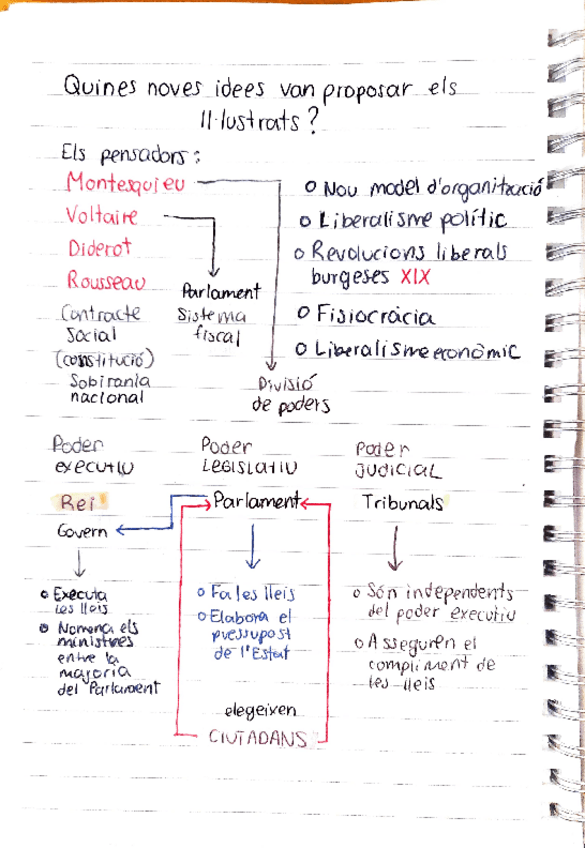 Quines noves idees van proposar els
Il·lustrats?
Els pensadors:
Montesquieu
Voltaire
Diderot
Rousseau
Contracte
Social
(constitució)
Sobirania
nacional
Parlament
Sistema
fiscal
Divisió
de poders
Nou model d'organització
Liberalisme polític
Revolucions liberals
burgeses XIX
Fisiocràcia
Liberalisme econòmic
Poder
executiu
Rei
Govern
Executa
les lleis
Nomena els
ministres
entre la
majoria
del Parlament
Poder
LEGISLATIU
Parlament
Fa les lleis
Elabora el
pressupost
de l'Estat
elegeixen
CIUTADANS
Poder
JUDICIAL
Tribunals
Són independents
del poder executiu
Asseguren el
compliment de
les lleis